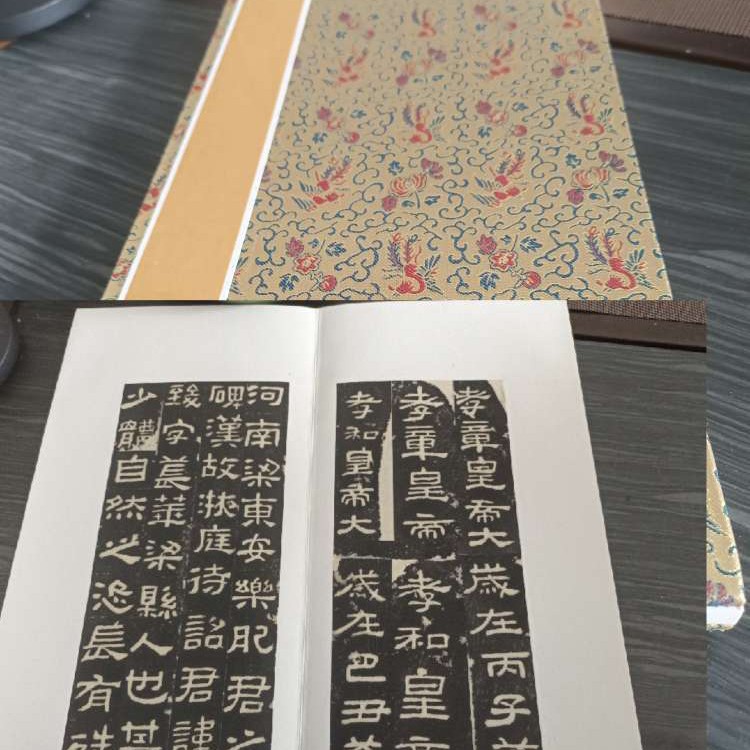 孝章皇帝大歲在丙子
孝章皇帝孝和皇帝
孝和皇帝大歲在己丑
河南梁東安樂肥君之
碑漢故掖庭待詔君諱
致字萇華梁縣人也其
少體自然之恣長有殊